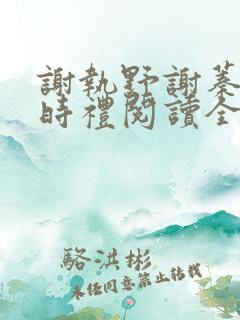 謝執野謝蓁
時禮閱讀全
駱洪彬
未经同意禁止转载